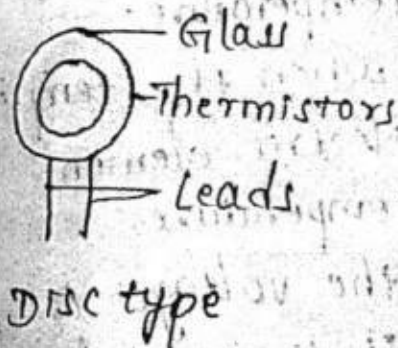 Glass
Thermistors
Leads
Disc type